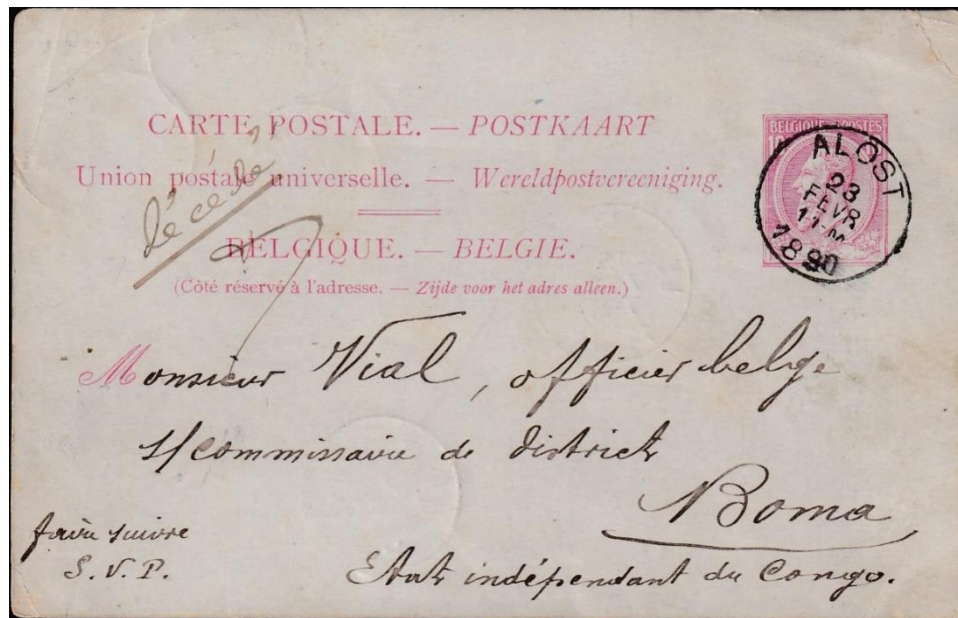 CARTE POSTALE. — POSTKAART
Union postale universelle. — Wereldpostvereeniging.
BELGIQUE. — BELGIE.
(Côté réservé à l'adresse. — Zijde voor het adres alleen.)
BELGIQUE POSTES
ALOST
23
FEVR
11-M
1890
décédé
Monsieur Vial, officier belge
s/commissaire de district
Boma
faire suivre
S.V.P.
Etat indépendant du Congo.